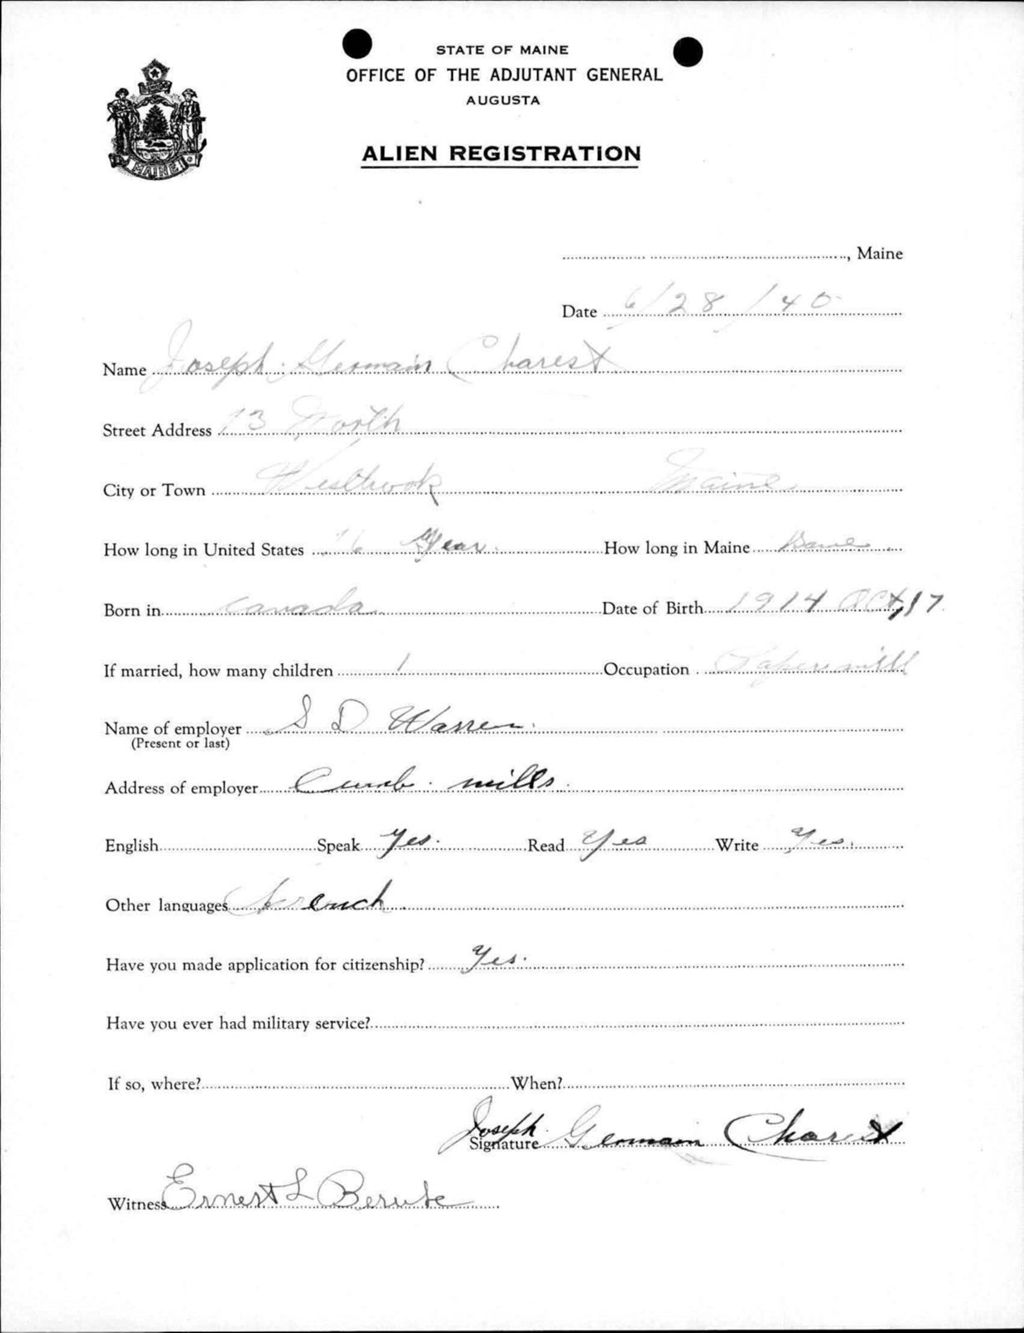 STATE OF MAINE
OFFICE OF THE ADJUTANT GENERAL
AUGUSTA
ALIEN REGISTRATION
MAINE
, Maine
Date 6/28/40
Name Joseph Germain Charest
Street Address 13 North
City or Town Westbrook Maine
How long in United States 16 Year How long in Maine
Born in Canada Date of Birth 1914 Oct, 17
If married, how many children 1 Occupation Paper mill
Name of employer S D Warren.
(Present or last)
Address of employer Cumb. mills.
English Speak Yes. Read Yes Write Yes.
Other languages French
Have you made application for citizenship? Yes.
Have you ever had military service?
If so, where? When?
Signature Joseph Germain Charest
Witness Ernest L Berube